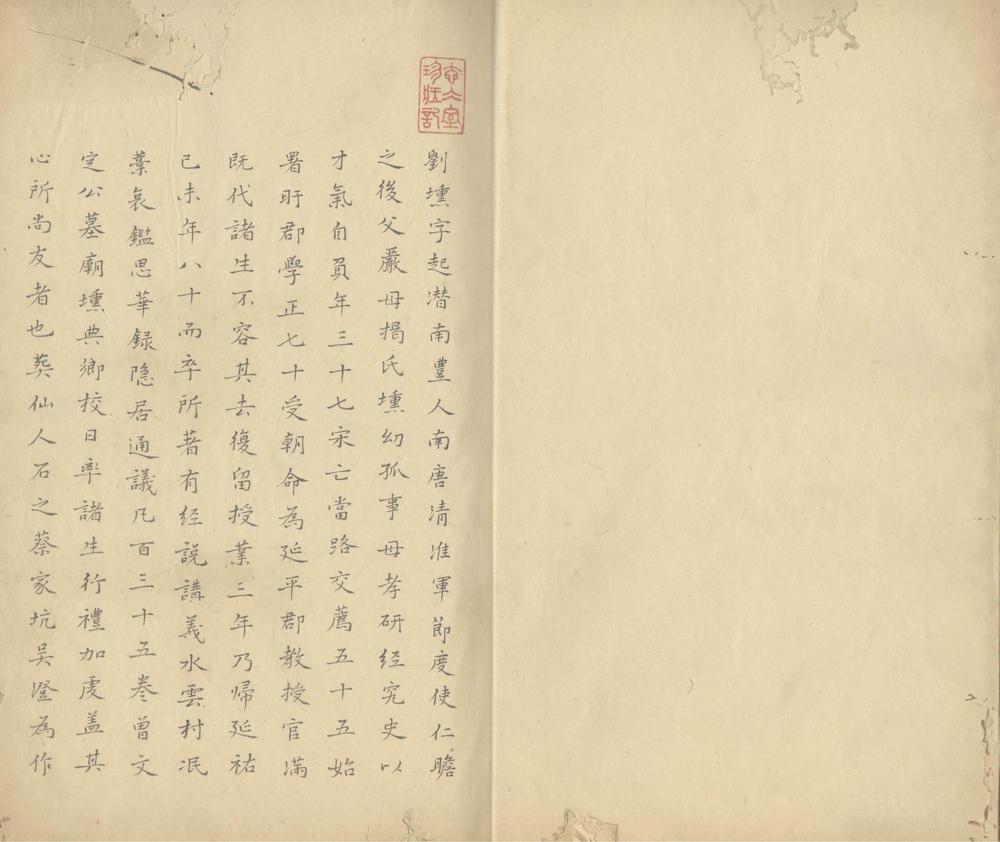 劉壎字起潛南豐人南唐清淮軍節度使仁贍
之後父嚴母揭氏壎幼孤事母孝研经究史以
才氣自負年三十七宋亡當路交薦五十五始
署盱郡學正七十受朝命為延平郡教授官滿
既代諸生不容其去復留授業三年乃歸延祐
己未年八十而卒所著有经說講義水雲村泯
藁哀鑑思華録隐居通議凡百三十五卷曾文
定公墓廟壎典鄉校日率諸生行禮加虔盖其
心所尚友者也葬仙人石之蔡家坑吴澄為作